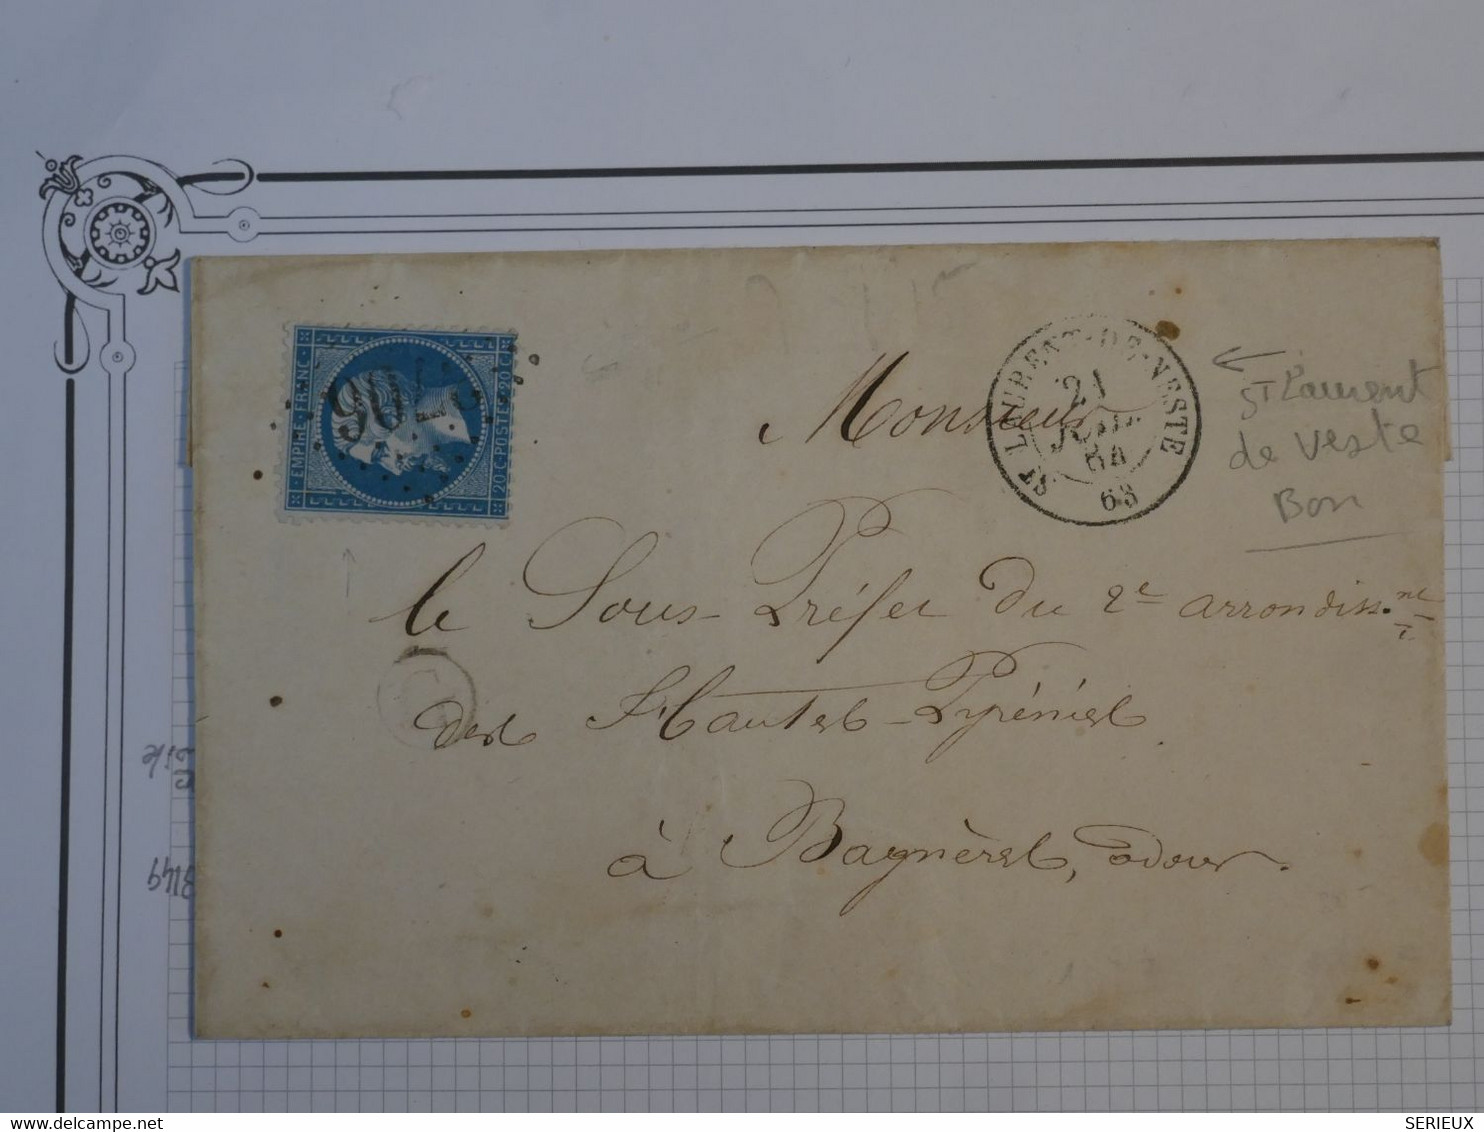 EMPIRE FRANC
20 C · POSTES · 20 C
ST LAURENT-DE-NESTE
21
JUIL
64
63
ST Laurent
de Veste
Bon
Monsieur
le Sous-Préfet du 2e arrondissnt
des Hautes-Pyrénées
à Bagnères, adour.
3149
SERIEUX